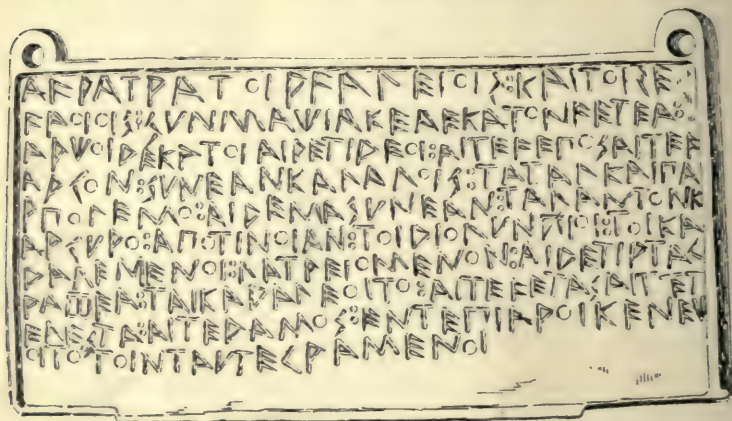 ΑϜΡΑΤΡΑΤΟΙΡϜΑΛΕΙΟΙΣ:ΚΑΙΤΟΙΣΕ
ϜΑΟΙΟΙΣ:ΣΥΝΜΑΨΙΑΚΕΑΕΚΑΤΟΝϜΕΤΕΑ:
ΑΡΨΟΙΔΕΚΑΤΟΙΑΙΔΕΤΙΔΕΟΙ:ΑΙΤΕϜΕΠΟΣΑΙΤΕϜ
ΑΡΓΟΝ:ΣΥΝΕΑΝΚΑΛΑΛΟΙΣ:ΤΑΤΑΛΚΑΙΠΑ
ΡΠΟΛΕΜΟ:ΑΙΔΕΜΑΣΥΝΕΑΝ:ΤΑΛΑΝΤΟΝΚ
ΑΡΓΥΡΟ:ΑΠΟΤΙΝΟΙΑΝ:ΤΟΙΔΙΟΛΥΝΠΙΟΙ:ΤΟΙΚΑ
ΔΑΛΕΜΕΝΟΙ:ΛΑΤΡΕΙΟΜΕΝΟΝ:ΑΙΔΕΤΙΡΤΑΓ
ΡΑΦΕΑ:ΤΑΙΚΑΔΑΛΕΟΙΤΟ:ΑΙΤΕϜΕΤΑΣΑΙΤΕΤ
ΕΛΕΣΤΑ:ΑΙΤΕΔΑΜΟΣ:ΕΝΤΕΠΙΑΡΟΙΚΕΝΕΨ
ΟΙΤΟΤΟΙΝΤΑΥΤΕΓΡΑΜΕΝΟΙ